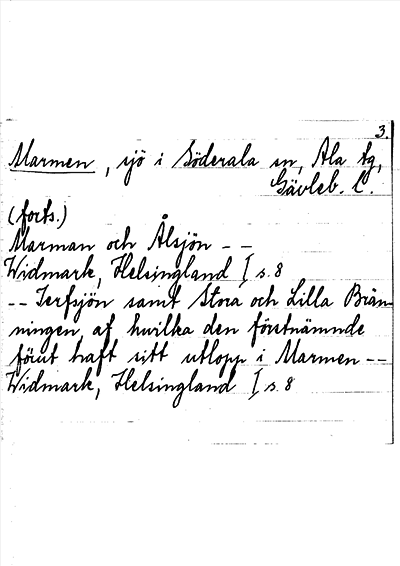 3.
Marmen, sjö i Söderala sn, Ala tg,
Gävleb. l.
(forts.)
Marman och Ålsjön - -
Widmark, Helsingland I s. 8
- - Terfsjön samt Stora och Lilla Brän-
ningen, af hwilka den förstnämnde
förut haft sitt utlopp i Marmen - -
Widmark, Helsingland I s. 8